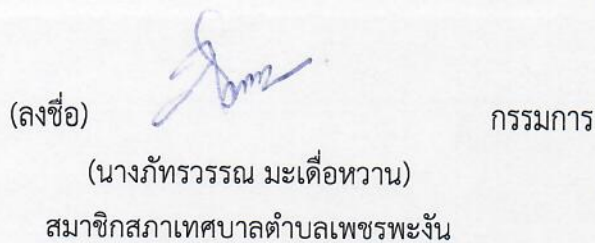 (ลงชื่อ) กรรมการ
(นางภัทรวรรณ มะเดื่อหวาน)
สมาชิกสภาเทศบาลตำบลเพชรพะงัน